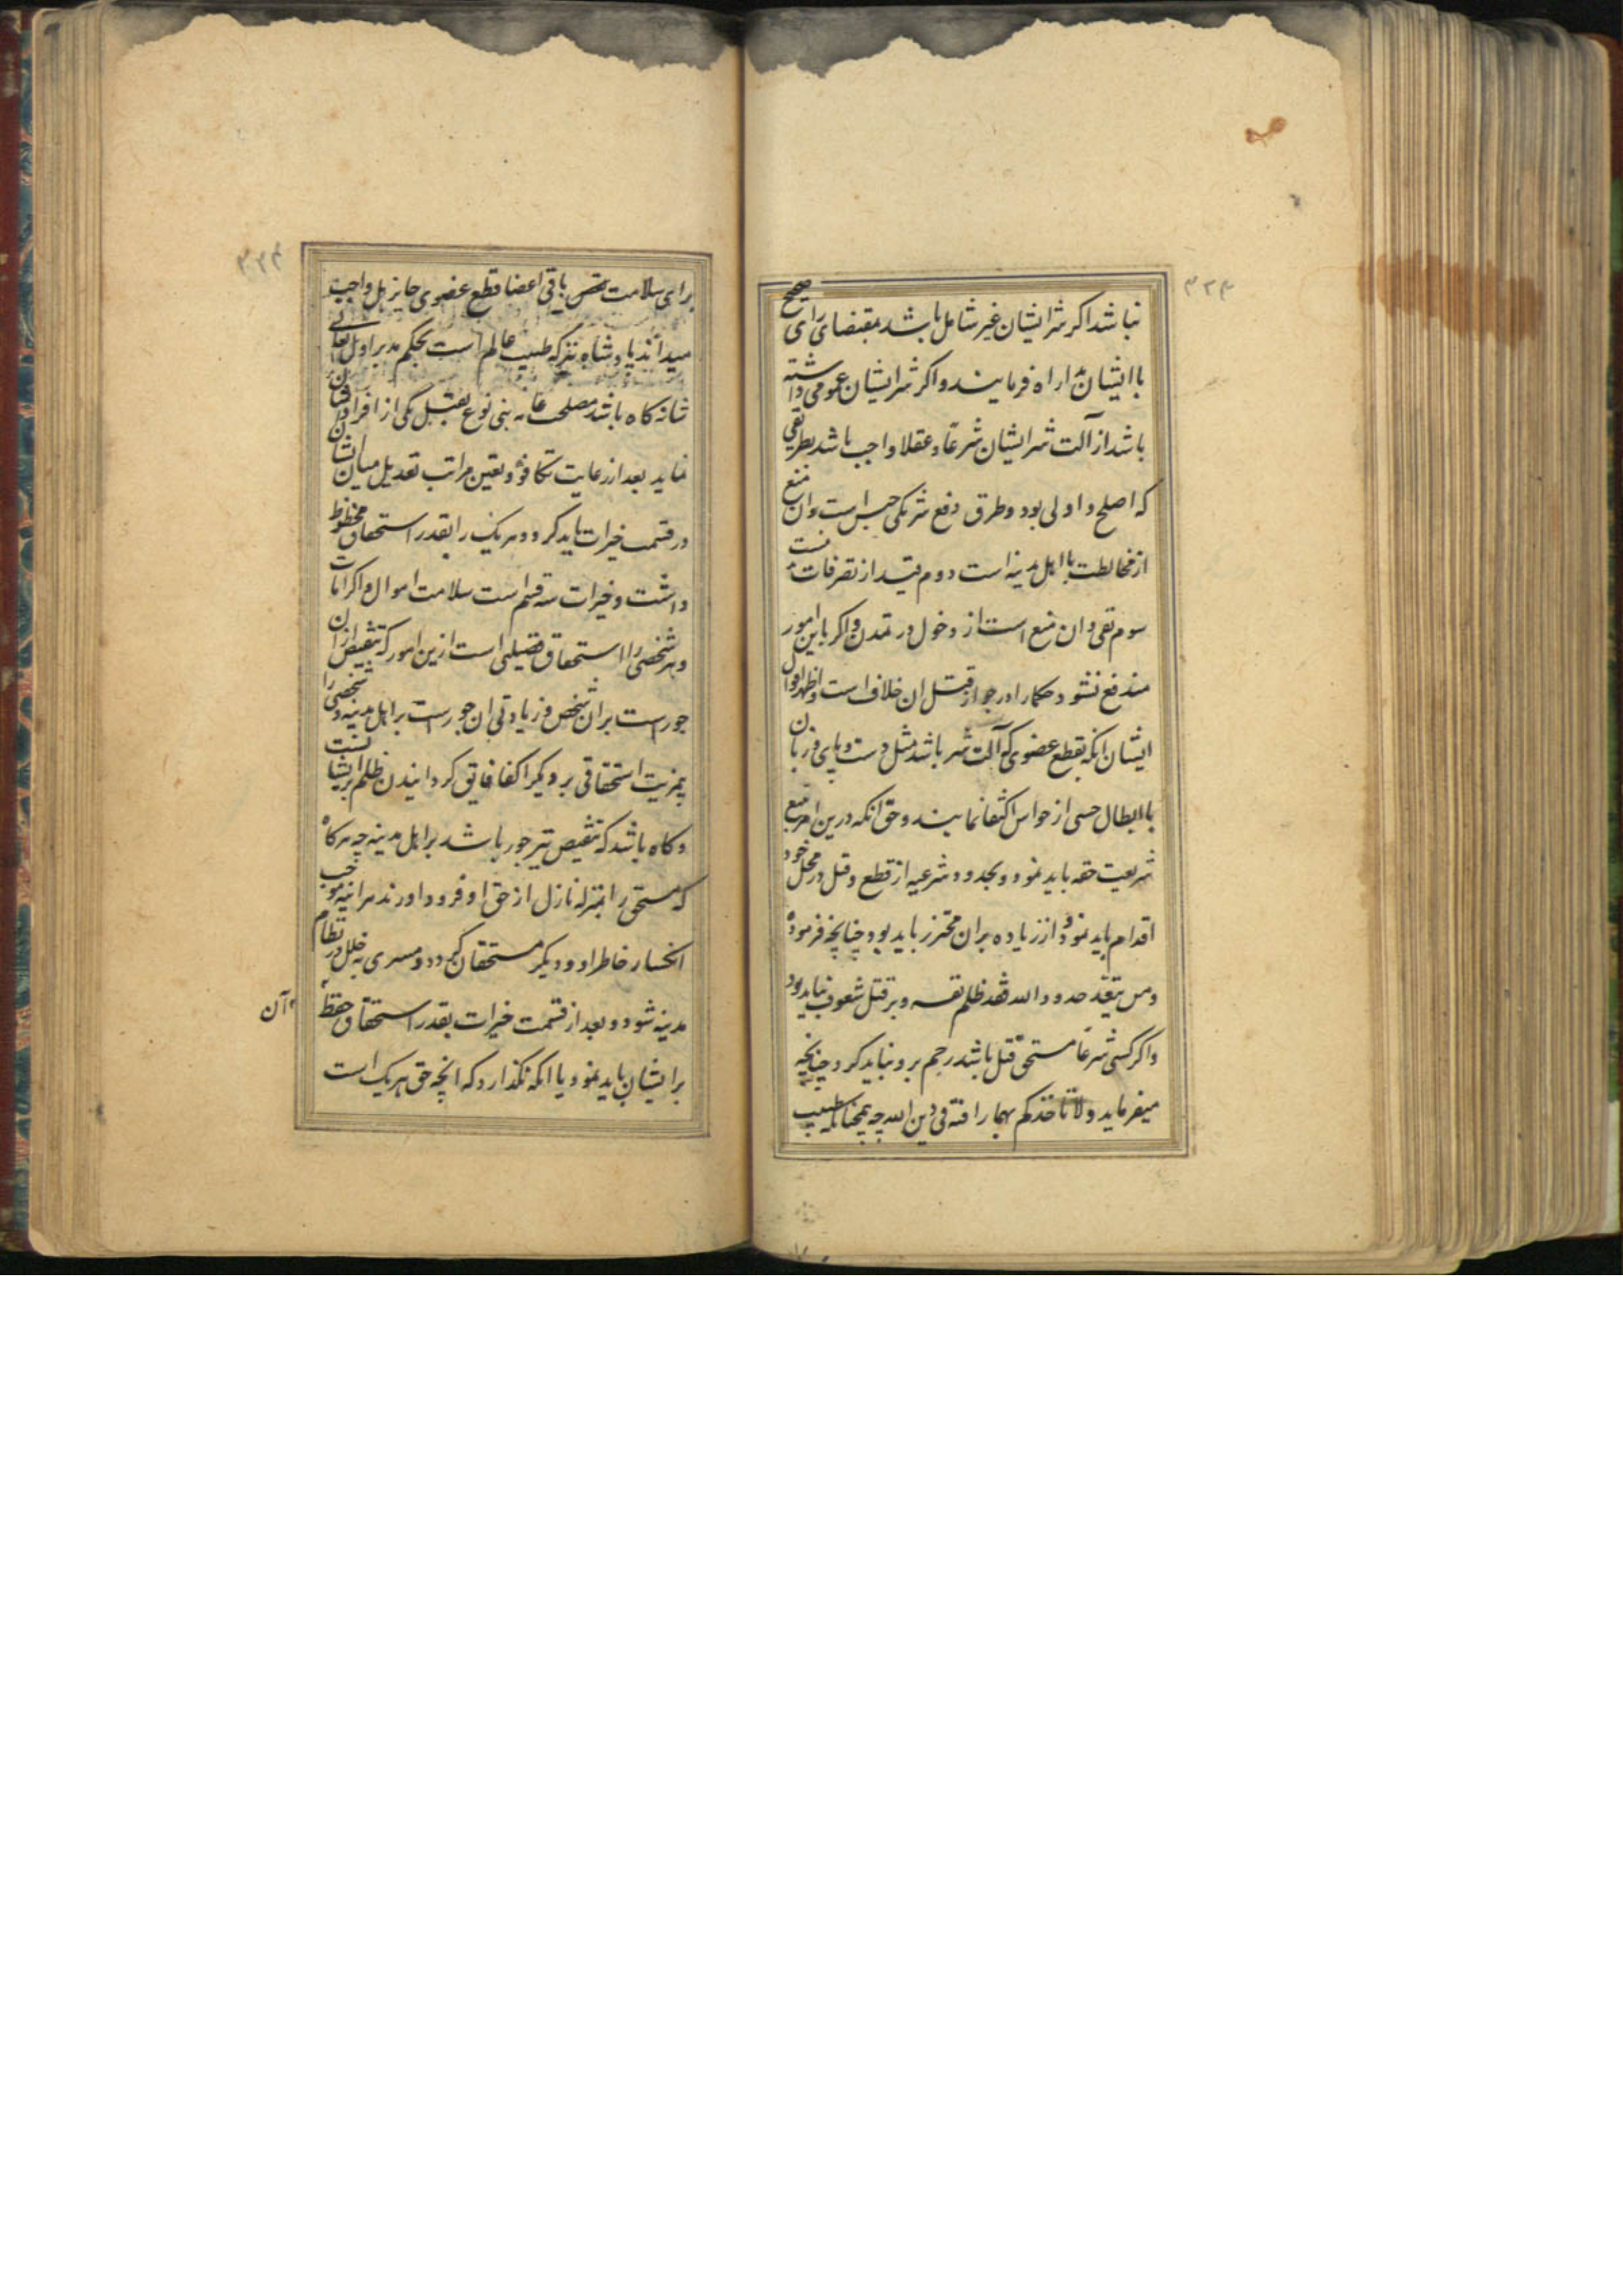 ۳۲۳
نباشد اکر شر ایشان غیر شامل باشد بمقتضای رای صحیح
با ایشان مداراه فرمایند و اکر شر ایشان عمومی داشته
باشد ازآلت شر ایشان شرعا و عقلا واجب باشد بطریقی
که اصلح و اولی بود و طرق دفع شر یکی حبس است و ان منع
از مخالطت با اهل مدینه است دوم قید از تصرفات
سوم نفی و ان منع است از دخول در تمدن و اکر باین امور
مندفع نشود حکما را در جواز قتل ان خلاف است و اظهر اقوال
ایشان انکه بقطع عضوی که آلت شر باشد مثل دست و پای و زبان
با ابطال حسی از حواس اکتفا نمایند و حق انکه درین امر تتبع
شریعت حقه باید نمود و بحدود شرعیه از قطع و قتل در محل خود
اقدام باید نمود و از زیاده بران محترز باید بود چنانچه فرموده
ومن یتعد حدود الله فقد ظلم نفسه و بر قتل شعوف نباید بود
و اکر کسی شرعا مستحق قتل باشد رحم برو نباید کرد چنانچه
میفرماید و لا تاخذکم بهما رافة فی دین الله چه همچنانکه طبیب
۳۲۴
برای سلامت باقی اعضا قطع عضوی جایز بل واجب
میداند پادشاه نیز که طبیب عالم است بحکم مدبر اول تعالی
شانه کاه باشد مصلحت عامه بنی نوع بقتل یکی از افراد انسان
نماید بعد از رعایت تکافؤ و تعین مراتب تعدیل میان ایشان
در قسمت خیرات باید کرد و هر یک را بقدر استحقاق محظوظ
داشت و خیرات سه قسم است سلامت اموال و اکرامات
و هر شخصی را استحقاق فضیلتی است ازین امور که تنقیص ازان
جورست بران شخص و زیادتی ان جورست بر اهل مدینه و شخصی را
بمزیت استحقاقی بر دیکر اکفا فایق کردانیدن ظلم بر ایشانست
و کاه باشد که تنقیص نیز جور باشد بر اهل مدینه چه هرکاه
که مستحق را بمنزله نازل از حق او فرود اورند هراینه موجب
انکسار خاطر او و دیکر مستحقان کردد و مسری بخلل در نظام
مدینه شود و بعد از قسمت خیرات بقدر استحقاق حفظ
آن
بر ایشان باید نمود یا انکه نکذارد که انچه حق هر یک است